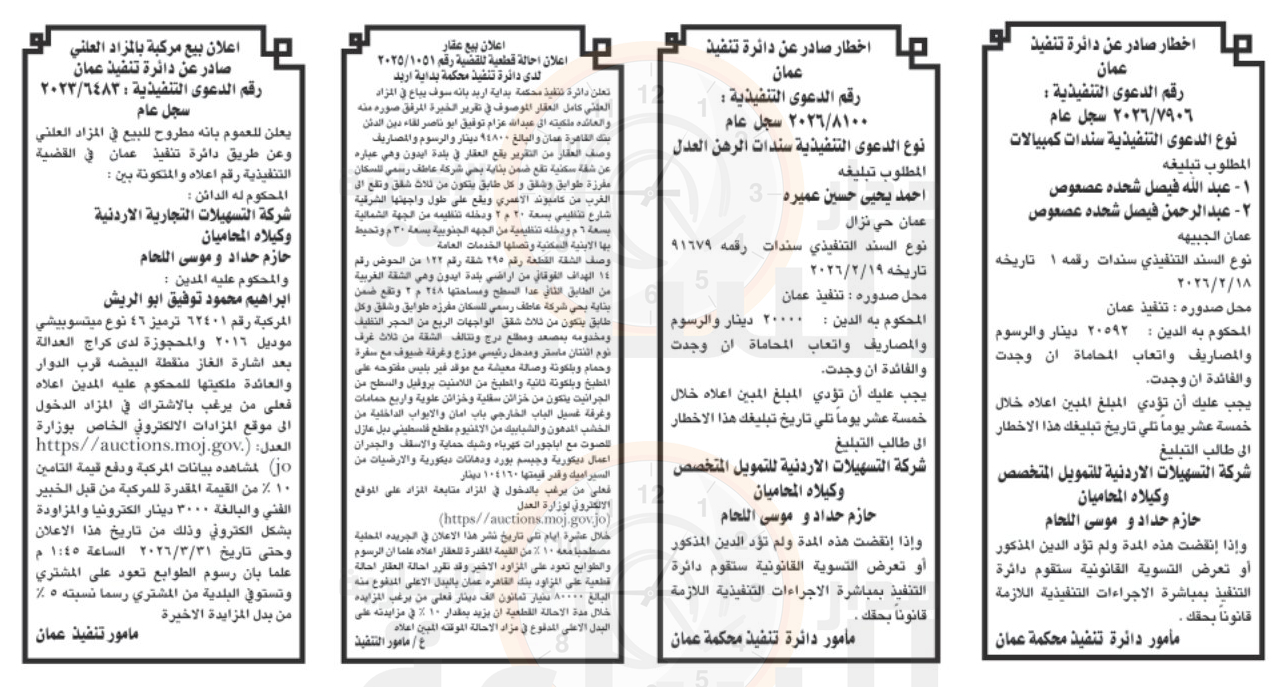 اخطار صادر عن دائرة تنفيذ
عمان
رقم الدعوى التنفيذية :
٢٠٢٦/٧٩٠٦ سجل عام
نوع الدعوى التنفيذية سندات كمبيالات
المطلوب تبليغه
١- عبد الله فيصل شحده عصعوص
٢- عبدالرحمن فيصل شحده عصعوص
عمان الجبيهه
نوع السند التنفيذي سندات رقمه ١ تاريخه
٢٠٢٦/٢/١٨
محل صدوره : تنفيذ عمان
المحكوم به الدين : ٢٠٥٩٢ دينار والرسوم
والمصاريف واتعاب المحاماة ان وجدت
والفائدة ان وجدت.
يجب عليك أن تؤدي المبلغ المبين اعلاه خلال
خمسة عشر يوماً تلي تاريخ تبليغك هذا الاخطار
الى طالب التبليغ
شركة التسهيلات الاردنية للتمويل المتخصص
وكيلاه المحاميان
حازم حداد و موسى اللحام
وإذا إنقضت هذه المدة ولم تؤد الدين المذكور
أو تعرض التسوية القانونية ستقوم دائرة
التنفيذ بمباشرة الاجراءات التنفيذية اللازمة
قانوناً بحقك .
مأمور دائرة تنفيذ محكمة عمان
اخطار صادر عن دائرة تنفيذ
عمان
رقم الدعوى التنفيذية :
٢٠٢٦/٨١٠٠ سجل عام
نوع الدعوى التنفيذية سندات الرهن العدل
المطلوب تبليغه
احمد يحيى حسين عميره
عمان حي نزال
نوع السند التنفيذي سندات رقمه ٩١٦٧٩
تاريخه ٢٠٢٦/٢/١٩
محل صدوره : تنفيذ عمان
المحكوم به الدين : ٢٠٠٠٠ دينار والرسوم
والمصاريف واتعاب المحاماة ان وجدت
والفائدة ان وجدت.
يجب عليك أن تؤدي المبلغ المبين اعلاه خلال
خمسة عشر يوماً تلي تاريخ تبليغك هذا الاخطار
الى طالب التبليغ
شركة التسهيلات الاردنية للتمويل المتخصص
وكيلاه المحاميان
حازم حداد و موسى اللحام
وإذا إنقضت هذه المدة ولم تؤد الدين المذكور
أو تعرض التسوية القانونية ستقوم دائرة
التنفيذ بمباشرة الاجراءات التنفيذية اللازمة
قانوناً بحقك .
مأمور دائرة تنفيذ محكمة عمان
اعلان بيع عقار
اعلان احالة قطعية للقضية رقم ٢٠٢٥/١٠٥١
لدى دائرة تنفيذ محكمة بداية اربد
تعلن دائرة تنفيذ محكمة بداية اربد بانه سوف يباع في المزاد
العلني كامل العقار الموصوف في تقرير الخبرة المرفق صوره منه
والعائده ملكيته الى عبدالله عزام توفيق ابو ناصر لقاء دين الدئن
بنك القاهرة عمان والبالغ ٩٤٨٠٠ دينار والرسوم والمصاريف
وصف العقار من التقرير يقع العقار في بلدة ايدون وهي عباره
عن شقة سكنية تقع ضمن بناية بحي شركة عاطف رسمي للسكان
مفرزة طوابق وشقق و كل طابق يتكون من ثلاث شقق وتقع الى
الغرب من كامبوند الاعمري ويقع على طول واجهتها الشرقية
شارع تنظيمي بسعة ٢٠ م ٢ ودخله تنظيمه من الجهة الشمالية
بسعة ٦ م ودخله تنظيمية من الجهه الجنوبية بسعة ٣٠ م وتحيط
بها الابنية السكنية وتصلها الخدمات العامة
وصف الشقة القطعة رقم ٢٩٥ شقة رقم ١٢٢ من الحوض رقم
١٤ الهداف الفوقاني من اراضي بلدة ايدون وهي الشقة الغربية
من الطابق الثاني عدا السطح ومساحتها ٢٤٨ م ٢ وتقع ضمن
بناية بحي شركة عاطف رسمي للسكان مفرزه طوابق وشقق وكل
طابق يتكون من ثلاث شقق الواجهات الربع من الحجر النظيف
ومخدومه بمصعد ومطلع درج وتتالف الشقة من ثلاث غرف
نوم اثنتان ماستر ومدحل رئيسي موزع وغرفة ضيوف مع سفرة
وحمام وبلكونة وصالة معيشة مع موقد فير بليس مفتوحه على
المطبخ وبلكونة ثانية والمطبخ من اللامنيت بروفيل والسطح من
الجرانيت يتكون من خزائن سفلية وخزائن علوية واربع حمامات
وغرفة غسيل الباب الخارجي باب امان والابواب الداخلية من
الخشب المدهون والشبابيك من الالمنيوم مقطع فلسطيني دبل عازل
للصوت مع اباجورات كهرباء وشبك حماية والاسقف والجدران
اعمال ديكورية وجبسم بورد ودهانات ديكورية والارضيات من
السيراميك وقدر قيمتها ١٠٤١٦٠ دينار
فعلى من يرغب بالدخول في المزاد متابعة المزاد على الموقع
الالكتروني لوزارة العدل
(https//auctions.moj.gov.jo)
خلال عشرة ايام تلي تاريخ نشر هذا الاعلان في الجريده المحلية
مصطحبا معه ١٠ ٪ من القيمة المقدرة للعقار اعلاه علما ان الرسوم
والطوابع تعود على المزاود الاخير وقد تقرر احالة العقار احالة
قطعية على المزاود بنك القاهره عمان بالبدل الاعلى المدفوع منه
البالغ ٨٠٠٠٠ دينار ثمانون الف دينار فعلى من يرغب المزايده
خلال مدة الاحالة القطعية ان يزيد بمقدار ١٠ ٪ في مزايدته على
البدل الاعلى المدفوع في مزاد الاحالة الموقته المبين اعلاه
ع / مامور التنفيذ
اعلان بيع مركبة بالمزاد العلني
صادر عن دائرة تنفيذ عمان
رقم الدعوى التنفيذية : ٢٠٢٣/٦٤٨٣
سجل عام
يعلن للعموم بانه مطروح للبيع في المزاد العلني
وعن طريق دائرة تنفيذ عمان في القضية
التنفيذية رقم اعلاه والمتكونة بين :
المحكوم له الدائن :
شركة التسهيلات التجارية الاردنية
وكيلاه المحاميان
حازم حداد و موسى اللحام
والمحكوم عليه المدين :
ابراهيم محمود توفيق ابو الريش
المركبة رقم ٦٢٤٠١ ترميز ٤٦ نوع ميتسوبيشي
موديل ٢٠١٦ والمحجوزة لدى كراج العدالة
بعد اشارة الغاز منقطة البيضه قرب الدوار
والعائدة ملكيتها للمحكوم عليه المدين اعلاه
فعلى من يرغب بالاشتراك في المزاد الدخول
الى موقع المزادات الالكتروني الخاص بوزارة
العدل: (https//auctions.moj.gov.
jo) لمشاهده بيانات المركبة ودفع قيمة التامين
١٠ ٪ من القيمة المقدرة للمركبة من قبل الخبير
الفني والبالغة ٣٠٠٠ دينار الكترونيا والمزاودة
بشكل الكتروني وذلك من تاريخ هذا الاعلان
وحتى تاريخ ٢٠٢٦/٣/٣١ الساعة ١:٤٥ م
علما بان رسوم الطوابع تعود على المشتري
وتستوفى البلدية من المشتري رسما نسبته ٥ ٪
من بدل المزايدة الاخيرة
مامور تنفيذ عمان